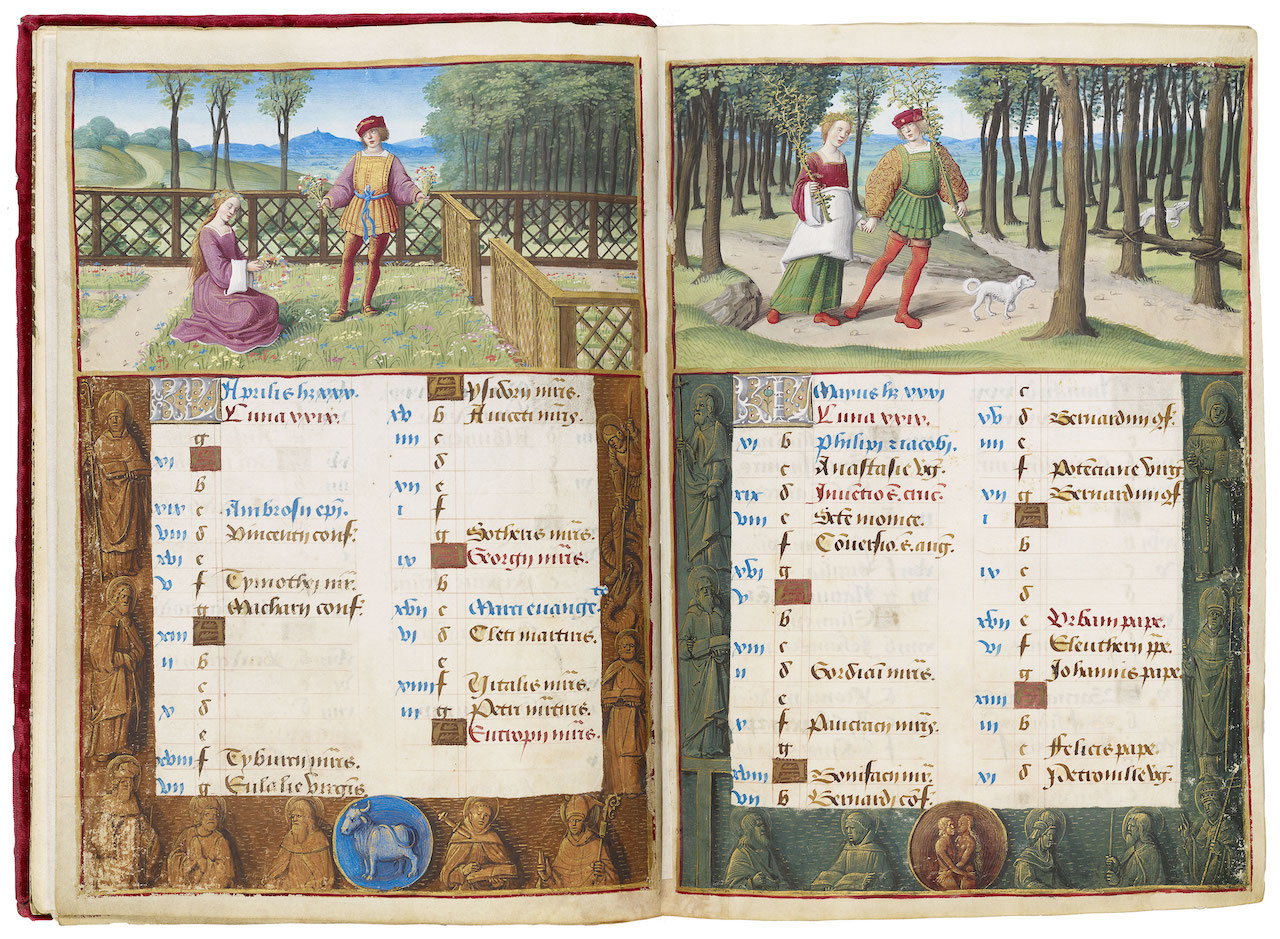 KL Aprilis hz xxx.
Luna xxix.
g
xi A
b
xix c Ambrosii epi.
viii d Vincentii conf.
xvi e
v f Tymothei mr.
g Macharii conf.
xiii A
ii b
c
x d
e
xviii f Tyburcii mris.
vii g Eulalie virginis
A Ysidori mris.
xv b Aniceti mris.
iiii c
d
xii e
i f
g Sotheris mris.
ix A Georgii mris.
b
xvii c Marci evangeте
vi d Cleti martiris.
e
xiiii f Vitalis mris.
iii g Petri mrtiris.
A Eutropii mris.
KL Mayus hz xxxi
Luna xxix.
xi b Philipi z iacobi.
c Anastasie vg.
xix d Inventio s. cruc.
viii e Scte monice.
f Conversio s. aug.
xvi g
v A
b
xiii c
ii d Gordiani mris.
e
x f Pancracii mris.
g
xviii A Bonifacii mr.
vii b Bernardi cof.
c
xv d Bernardini cf.
iiii e
f Potenciane virg.
xii g Bernardini cf
i A
b
ix c
d
xvii e Urbani pape.
vi f Eleutherii pp.
g Johannis pape.
xiiii A
iii b
c Felicis pape.
xi d Petronille vg.